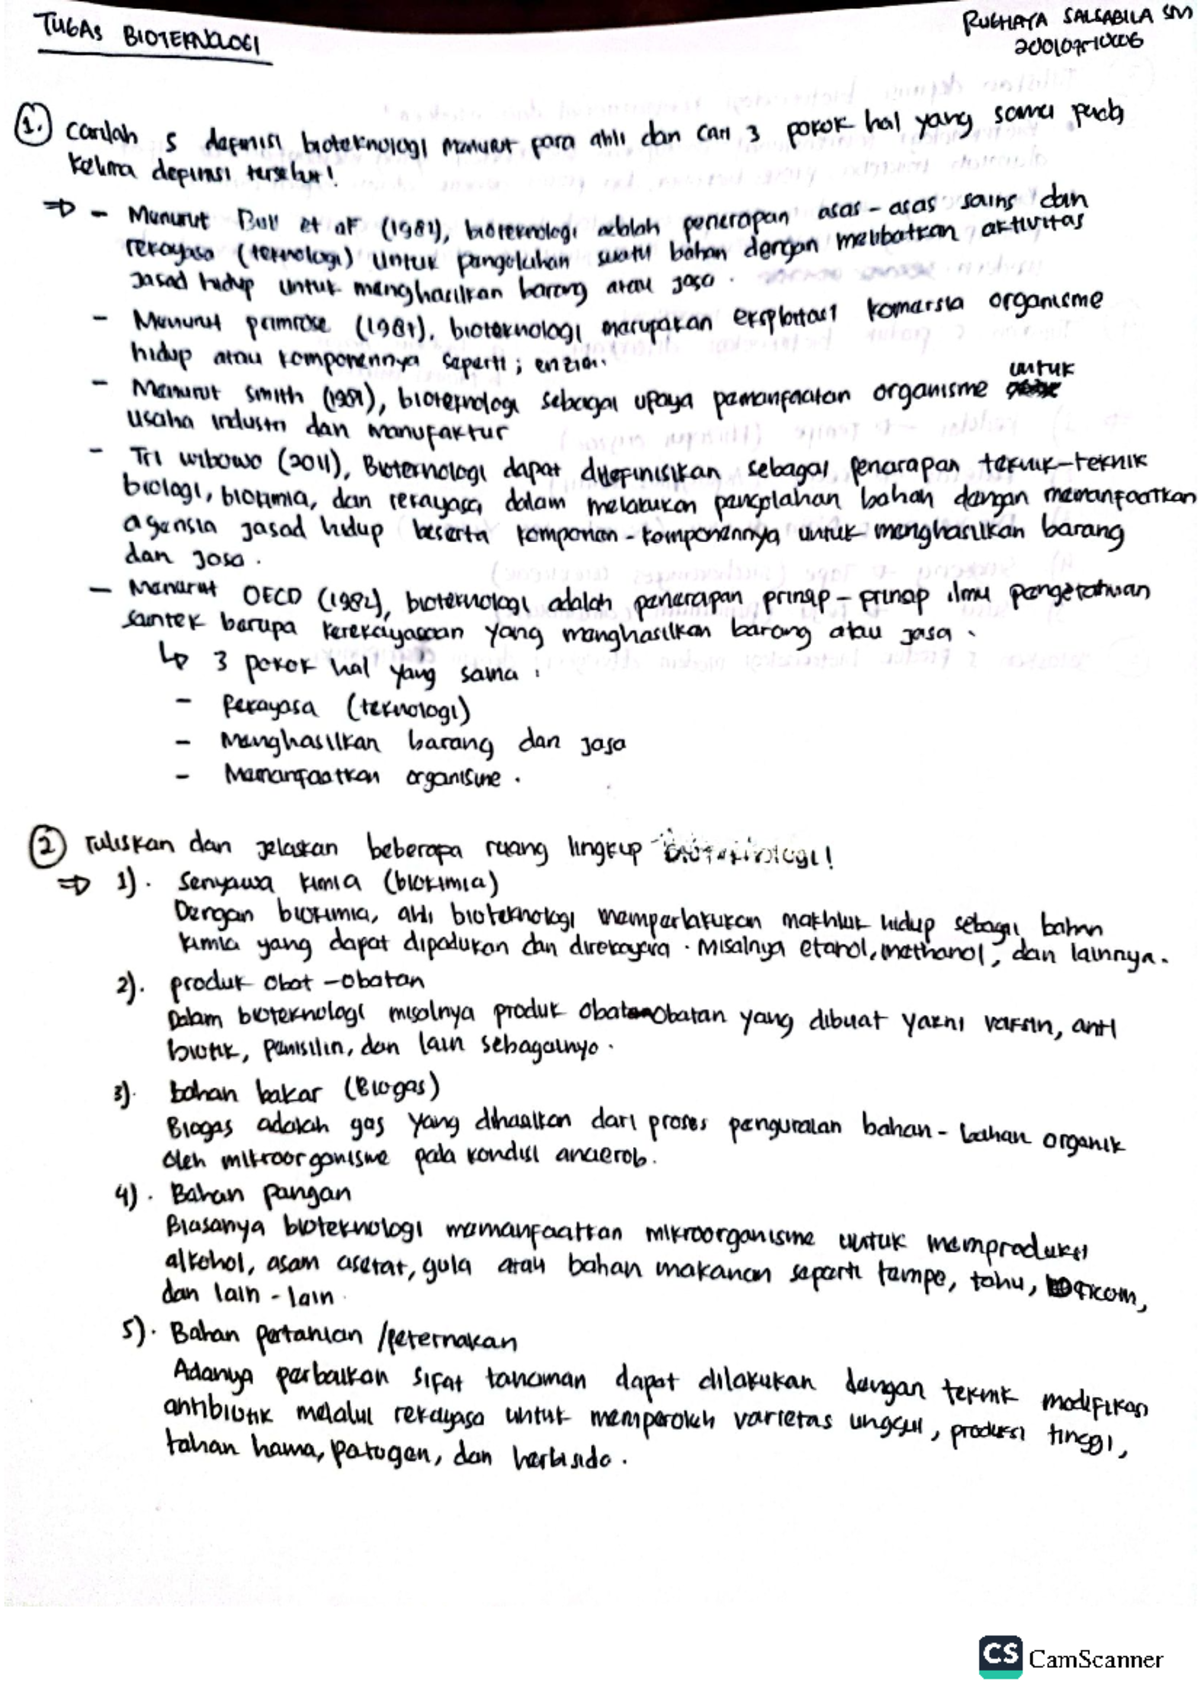 TUGAS BIOTEKNOLOGI
RUGHAYA SALSABILA SM
1. Carilah 5 definisi bioteknologi menurut para ahli dan cari 3 pokok hal yang sama pada
kelima definisi tersebut!
⇒ - Menurut Bull et al (1982), bioteknologi adalah penerapan asas-asas sains dan
rekayasa (teknologi) untuk pengolahan suatu bahan dengan melibatkan aktivitas
jasad hidup untuk menghasilkan barang atau jasa.
- Menurut primrose (1987), bioteknologi merupakan eksploitasi komersia organisme
hidup atau komponennya seperti; enzim.
- Menurut Smith (1981), bioteknologi sebagai upaya pemanfaatan organisme untuk
usaha industri dan manufaktur
- Tri wibowo (2011), Bioteknologi dapat didefinisikan sebagai penerapan teknik-teknik
biologi, biokimia, dan rekayasa dalam melakukan pengolahan bahan dengan memanfaatkan
agensia jasad hidup beserta komponen-komponennya untuk menghasilkan barang
dan jasa.
- Menurut OECD (1982), bioteknologi adalah penerapan prinsip-prinsip ilmu pengetahuan
saintek berupa kerekayasaan yang menghasilkan barang atau jasa.
↳ 3 pokok hal yang sama :
- Rekayasa (teknologi)
- Menghasilkan barang dan jasa
- Memanfaatkan organisme.
2 Tuliskan dan jelaskan beberapa ruang lingkup bioteknologi!
⇒ 1). Senyawa kimia (biokimia)
Dengan biokimia, ahli bioteknologi memperlakukan makhluk hidup sebagai bahan
kimia yang dapat dipadukan dan direkayasa. Misalnya etanol, methanol, dan lainnya.
2). produk obat-obatan
Dalam bioteknologi misalnya produk obat-obatan yang dibuat yakni vaksin, anti
biotik, penisilin, dan lain sebagainya.
3). bahan bakar (Biogas)
Biogas adalah gas yang dihasilkan dari proses penguraian bahan-bahan organik
oleh mikroorganisme pada kondisi anaerob.
4). Bahan pangan
Biasanya bioteknologi memanfaatkan mikroorganisme untuk memproduksi
alkohol, asam asetat, gula atau bahan makanan seperti tempe, tahu,
dan lain-lain.
5). Bahan pertanian /peternakan
Adanya perbaikan sifat tanaman dapat dilakukan dengan teknik modifikasi
antibiotik melalui rekayasa untuk memperoleh varietas unggul, produksi tinggi,
tahan hama, patogen, dan herbisida.
CS CamScanner